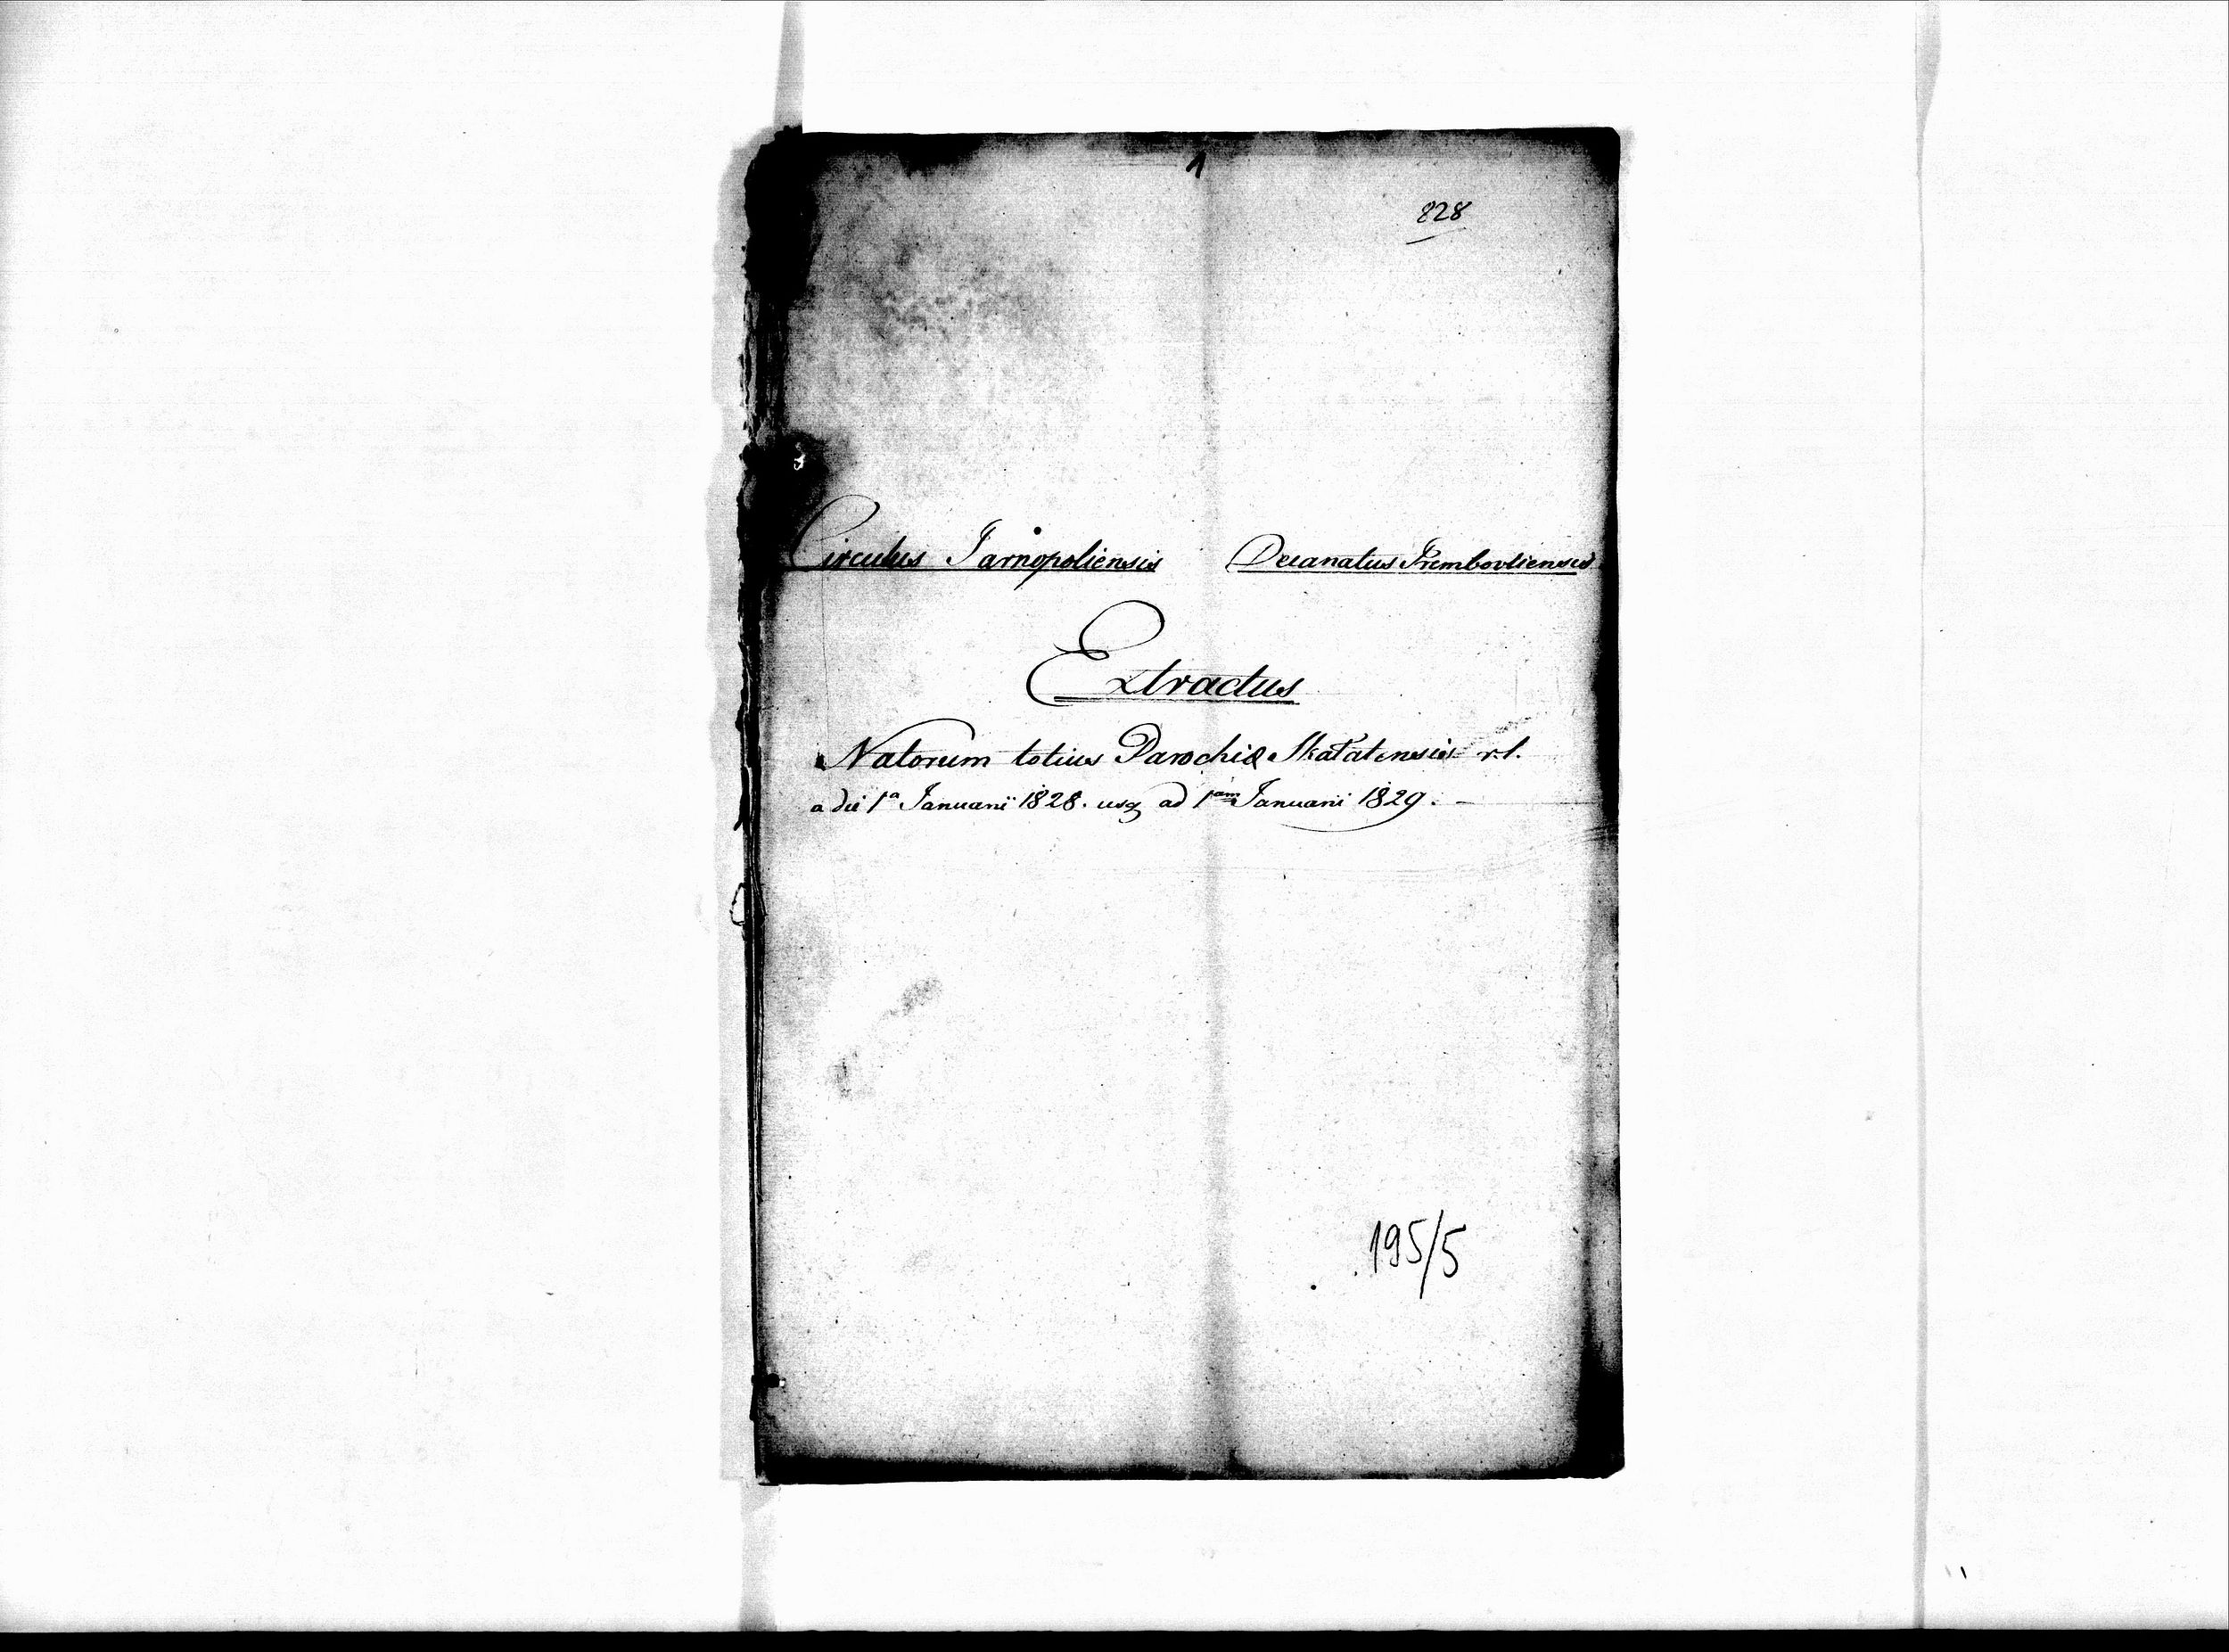 1
828
Circulus Tarnopoliensis Decanatus Trembovliensis
Extractus
Natorum totius Parochiæ Skałatensis r. l.
a die 1ª Januarii 1828. usq ad 1am Januarii 1829. –
195/5